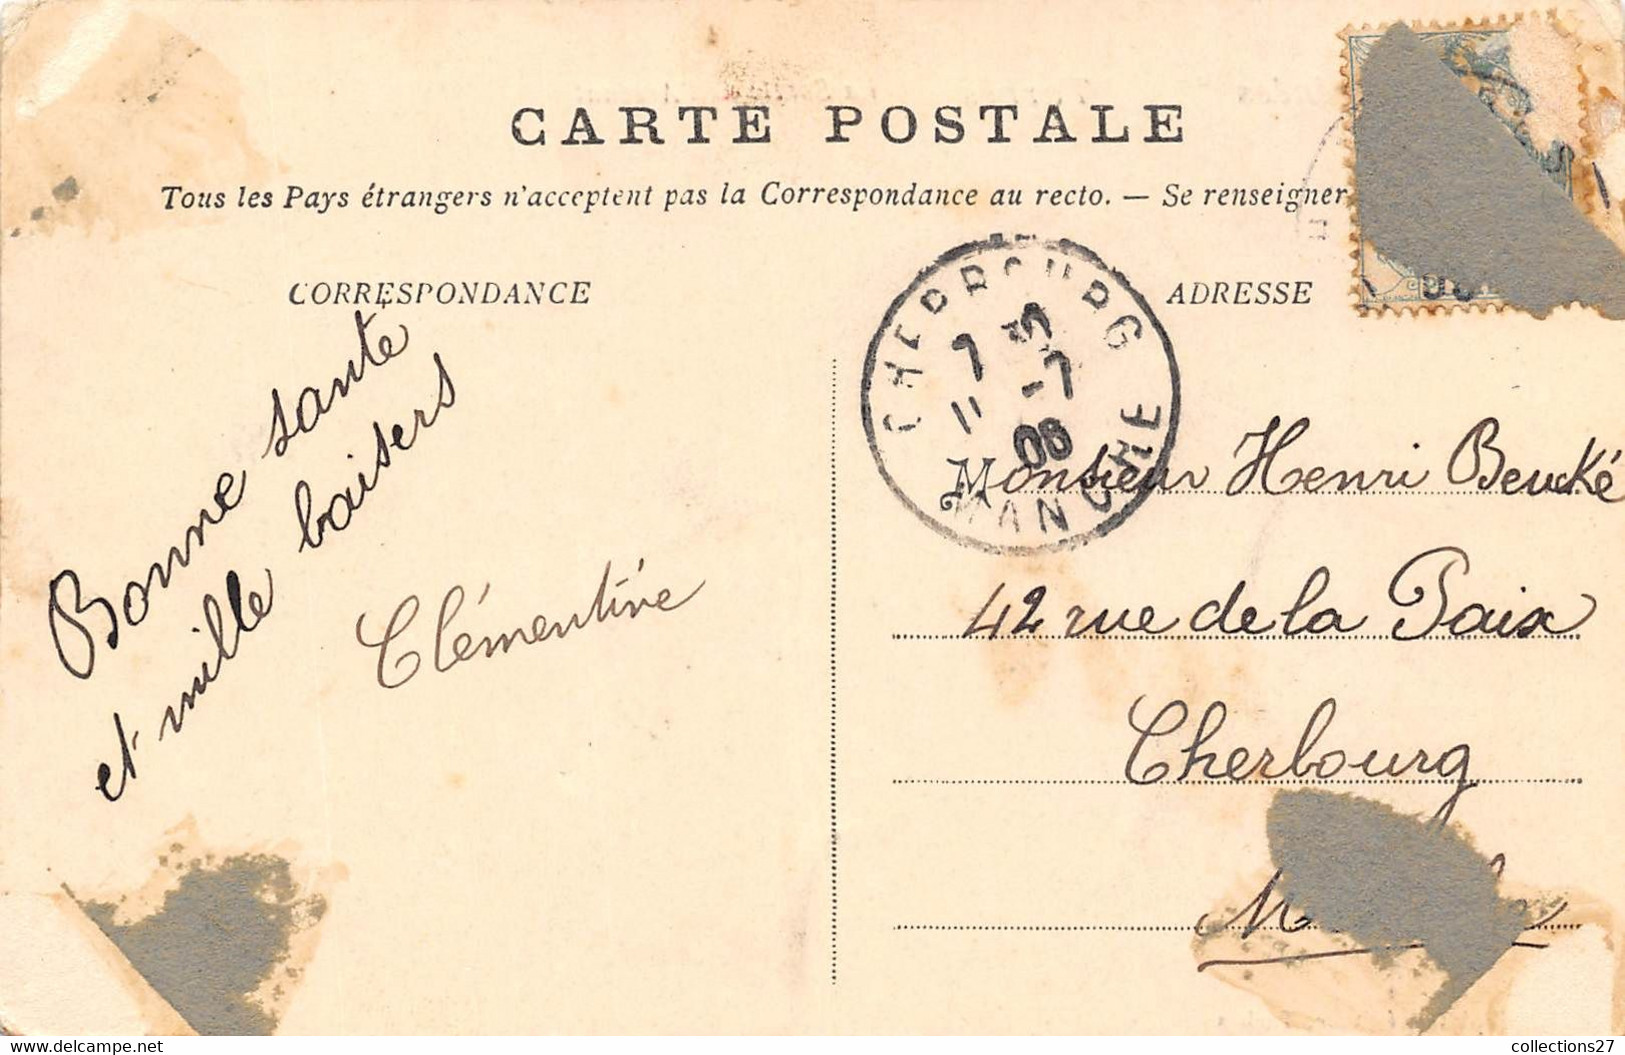 CARTE POSTALE
Tous les Pays étrangers n'acceptent pas la Correspondance au recto. — Se renseigner
CORRESPONDANCE
ADRESSE
CHERBOURG
MANCHE
11 -7
06
Bonne santé
et mille baisers
Clémentine
Monsieur Henri Beucké
42 rue de la Paix
Cherbourg
collections27